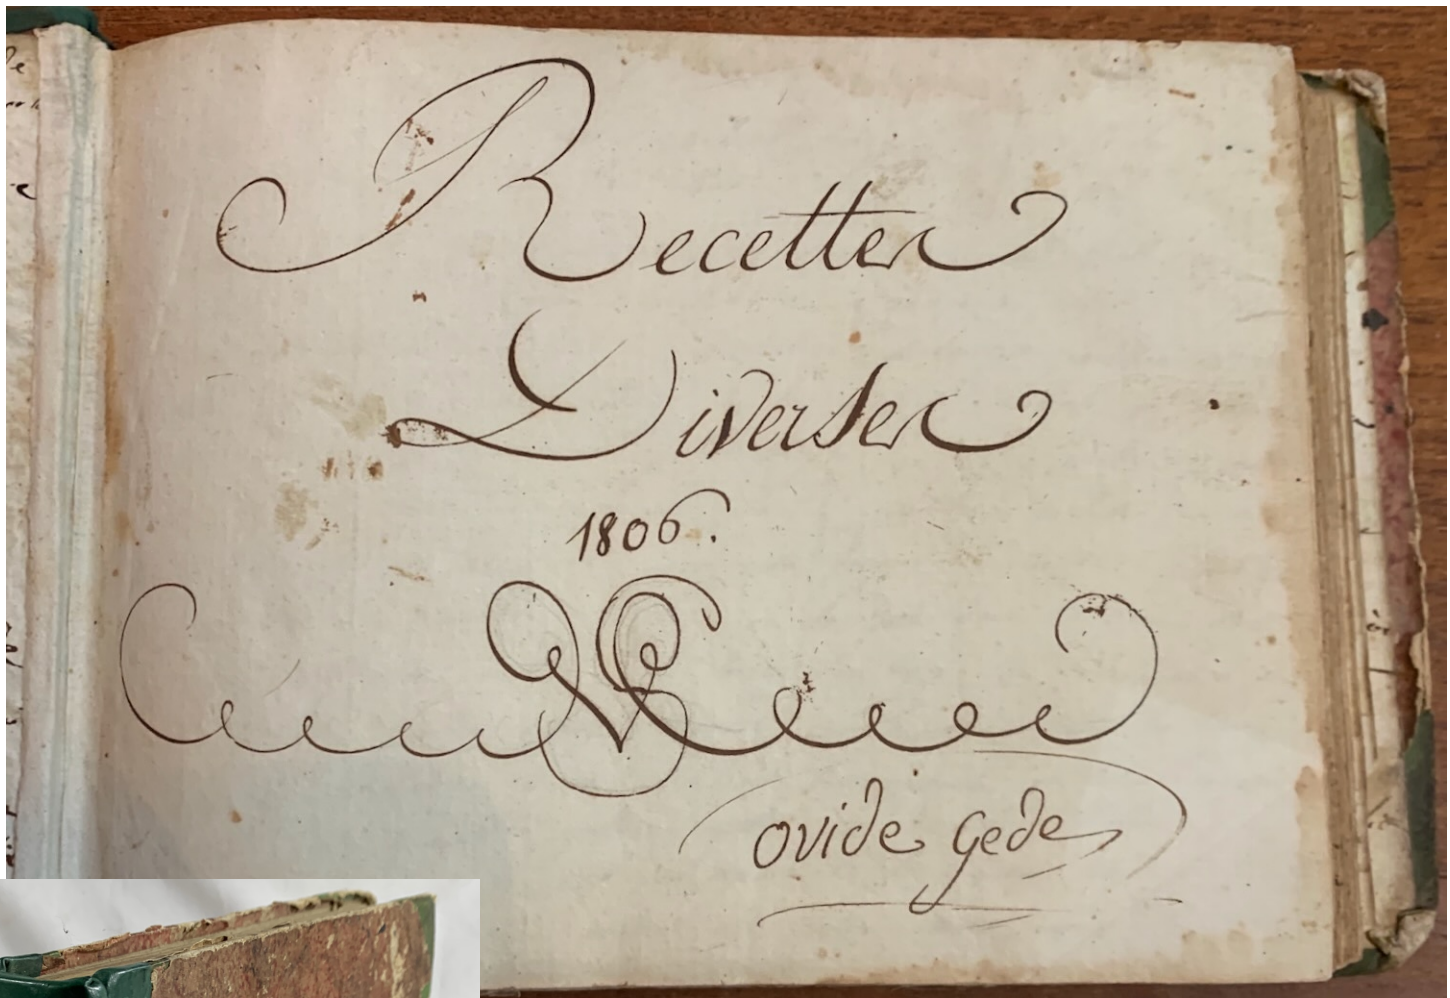 Recettes
Diverses
1806.
ovide gede